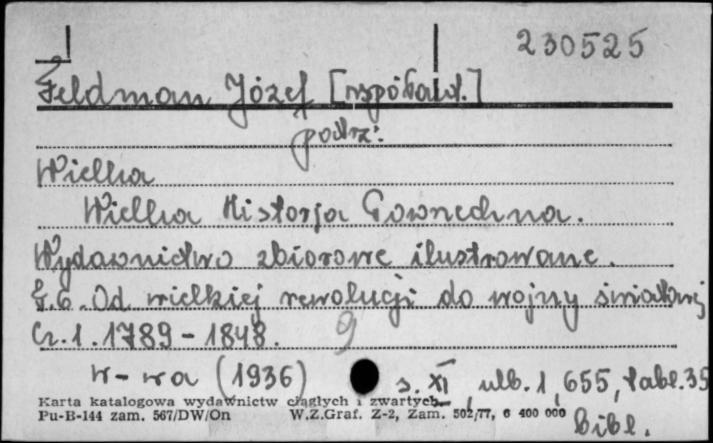 230525
Feldman Józef [współaut.]
patrz:
Wielka
Wielka Historja Powszechna.
Wydawnictwo zbiorowe ilustrowane.
T.6. Od wielkiej rewolucji do wojny światowej
Cz.1. 1789-1848. 9
W-wa (1936) s. XI, ulb. 1, 655, tabl. 35
Karta katalogowa wydawnictw ciągłych i zwartych
Pu-B-144 zam. 567/DW/On W.Z.Graf. Z-2, Zam. 502/77, 6 400 000
Bibl.